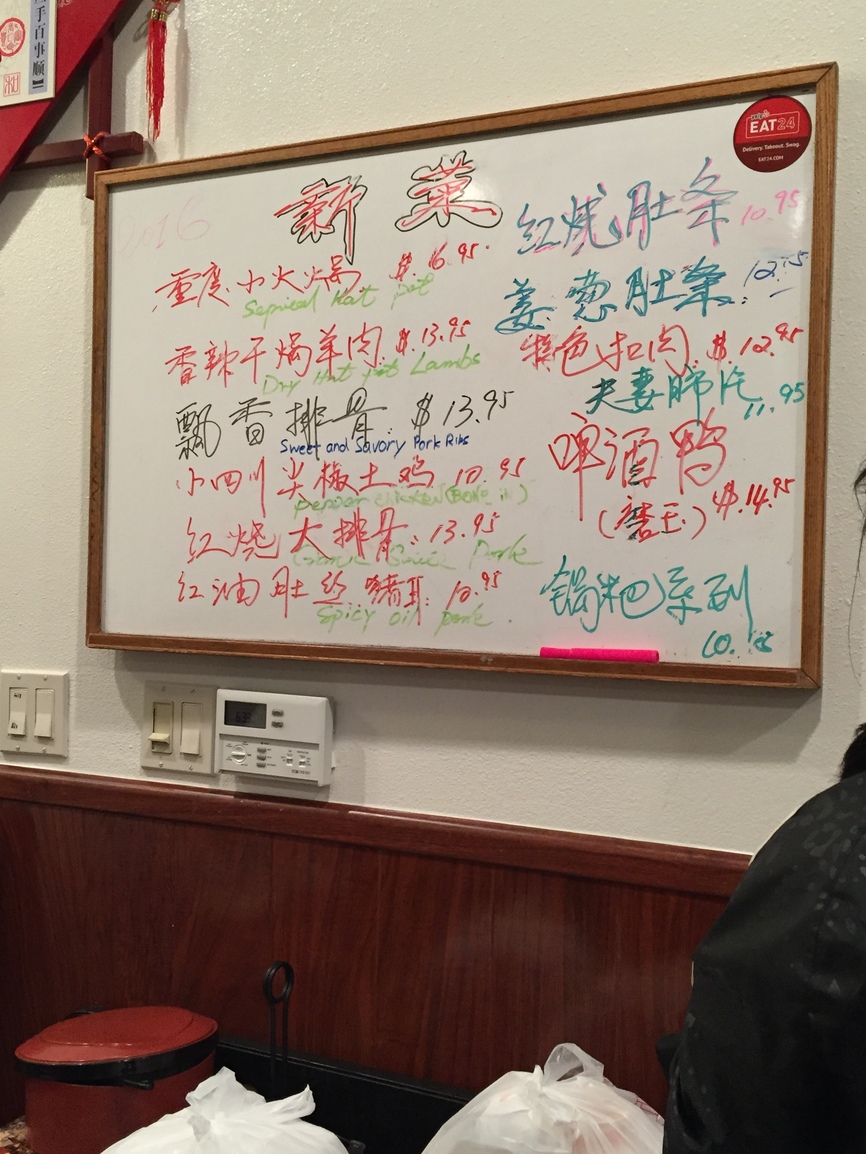 手百事顺
2016
新菜
重庆小火锅 $16.95
Special Hot pot
香辣干锅羊肉 $13.95
Dry Hot pot Lambs
飘香排骨 $13.95
Sweet and Savory Pork Ribs
小四川尖椒土鸡 10.95
pepper chicken (BONE in)
红烧大排骨: 13.95
Pork
红油肚丝 猪耳: 10.95
Spicy oil pork
EAT24
Delivery. Takeout. Swag.
EAT24.COM
红烧肚条 10.95
姜葱肚条:
特色扣肉. $12.95
夫妻肺片 11.95
啤酒鸭 $.14.95
锅粑系列